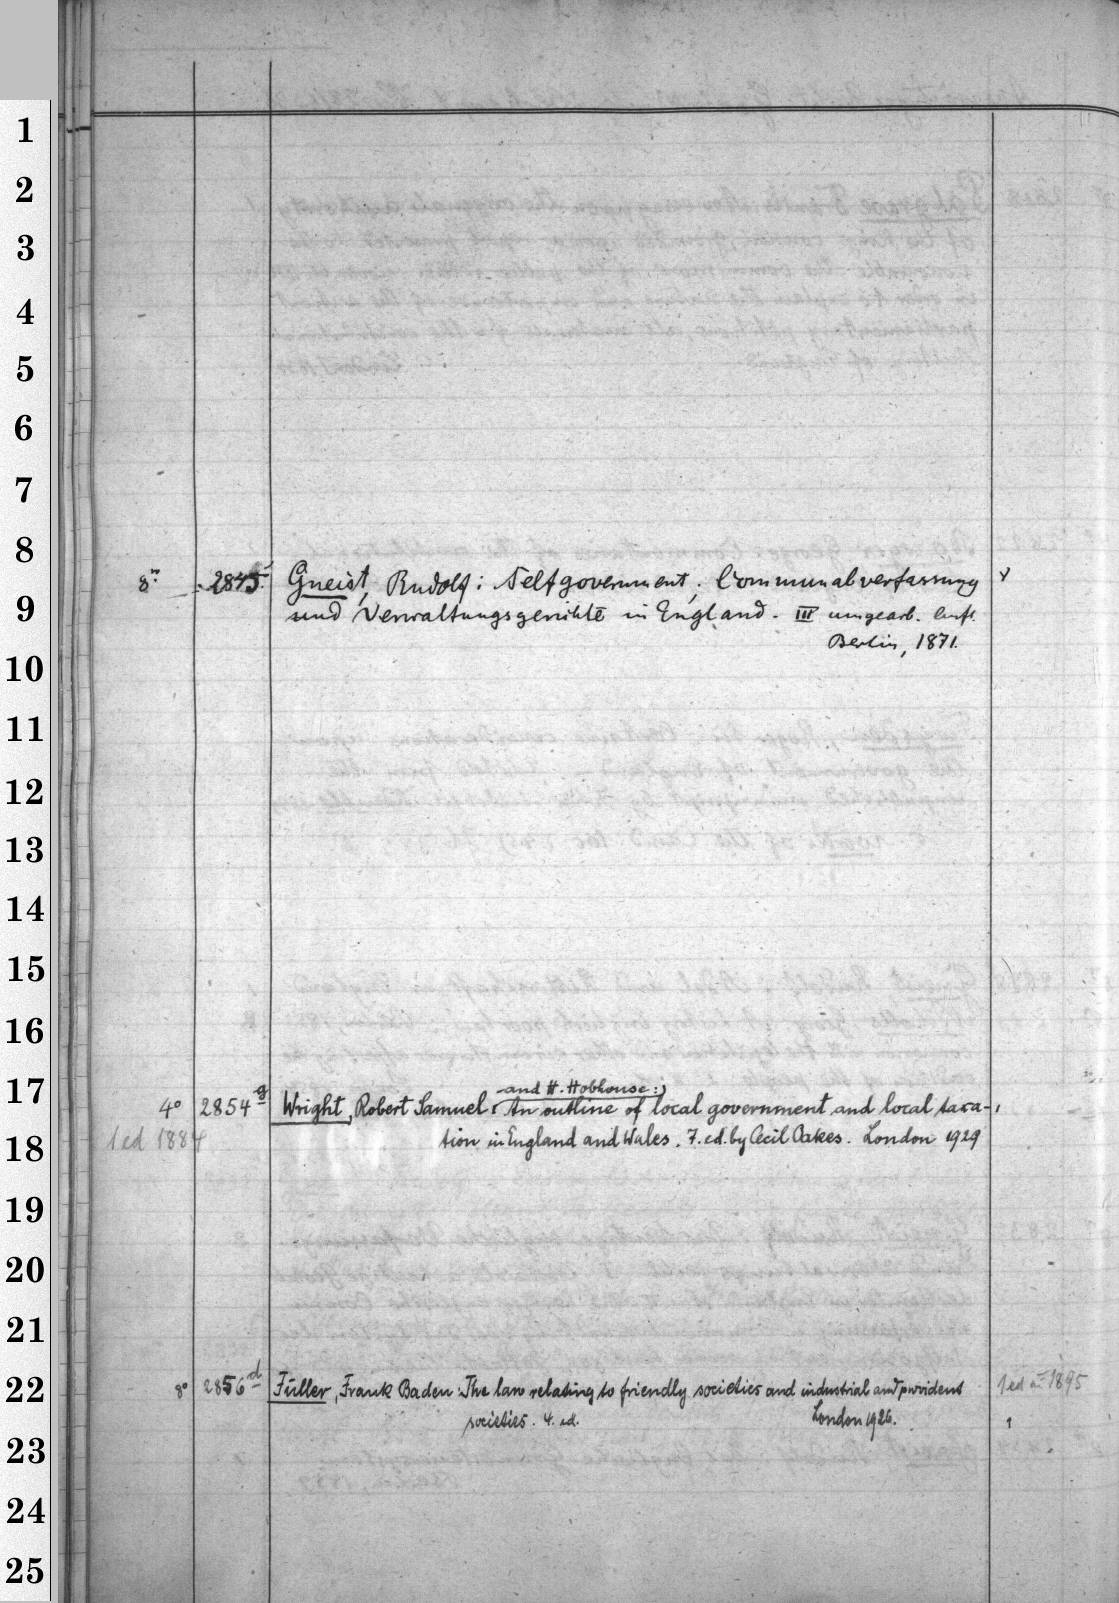 1
2
3
4
5
6
7
8
8º 2845 Gneist, Rudolf: Selfgovernment, Communalverfassung
9
und Verwaltungsgerichte in England. III umgearb. Aufl.
Berlin, 1871.
10
11
12
13
14
15
16
17
and H. Hobhouse:
4º 2854 g Wright, Robert Samuel: An outline of local government and local taxa-
18
1 ed 1884 tion in England and Wales. 7. ed. by Cecil Oakes. London 1929
19
20
21
22
8º 2856 d Fuller, Frank Baden: The law relating to friendly societies and industrial and provident 1 ed 1895
societies. 4. ed. London 1926. 1
23
24
25